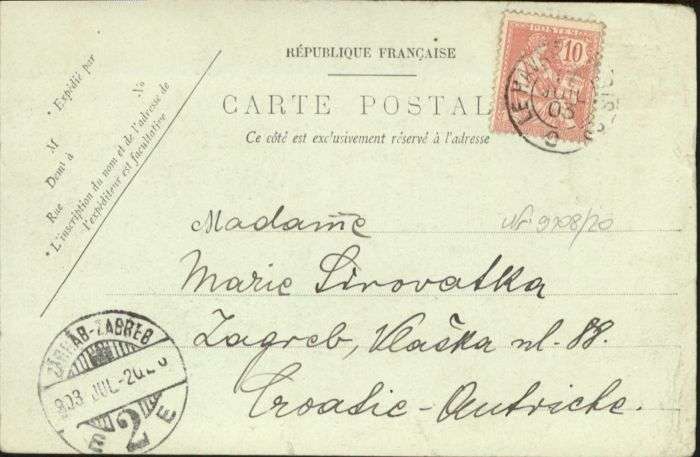 RÉPUBLIQUE FRANÇAISE
CARTE POSTALE
Ce côté est exclusivement réservé à l'adresse
• Expédié par
M No
Demt à
Rue
• L'inscription du nom et de l'adresse de
l'expéditeur est facultative
10
LE HAVRE
JUIL
03
Nr 9708/20
Madame
Marie Sirovatka
Zagreb, Vlaška ul. 88.
Croatie-Autriche.
ZÁGRÁB-ZAGREB
903 JUL-20
2
E